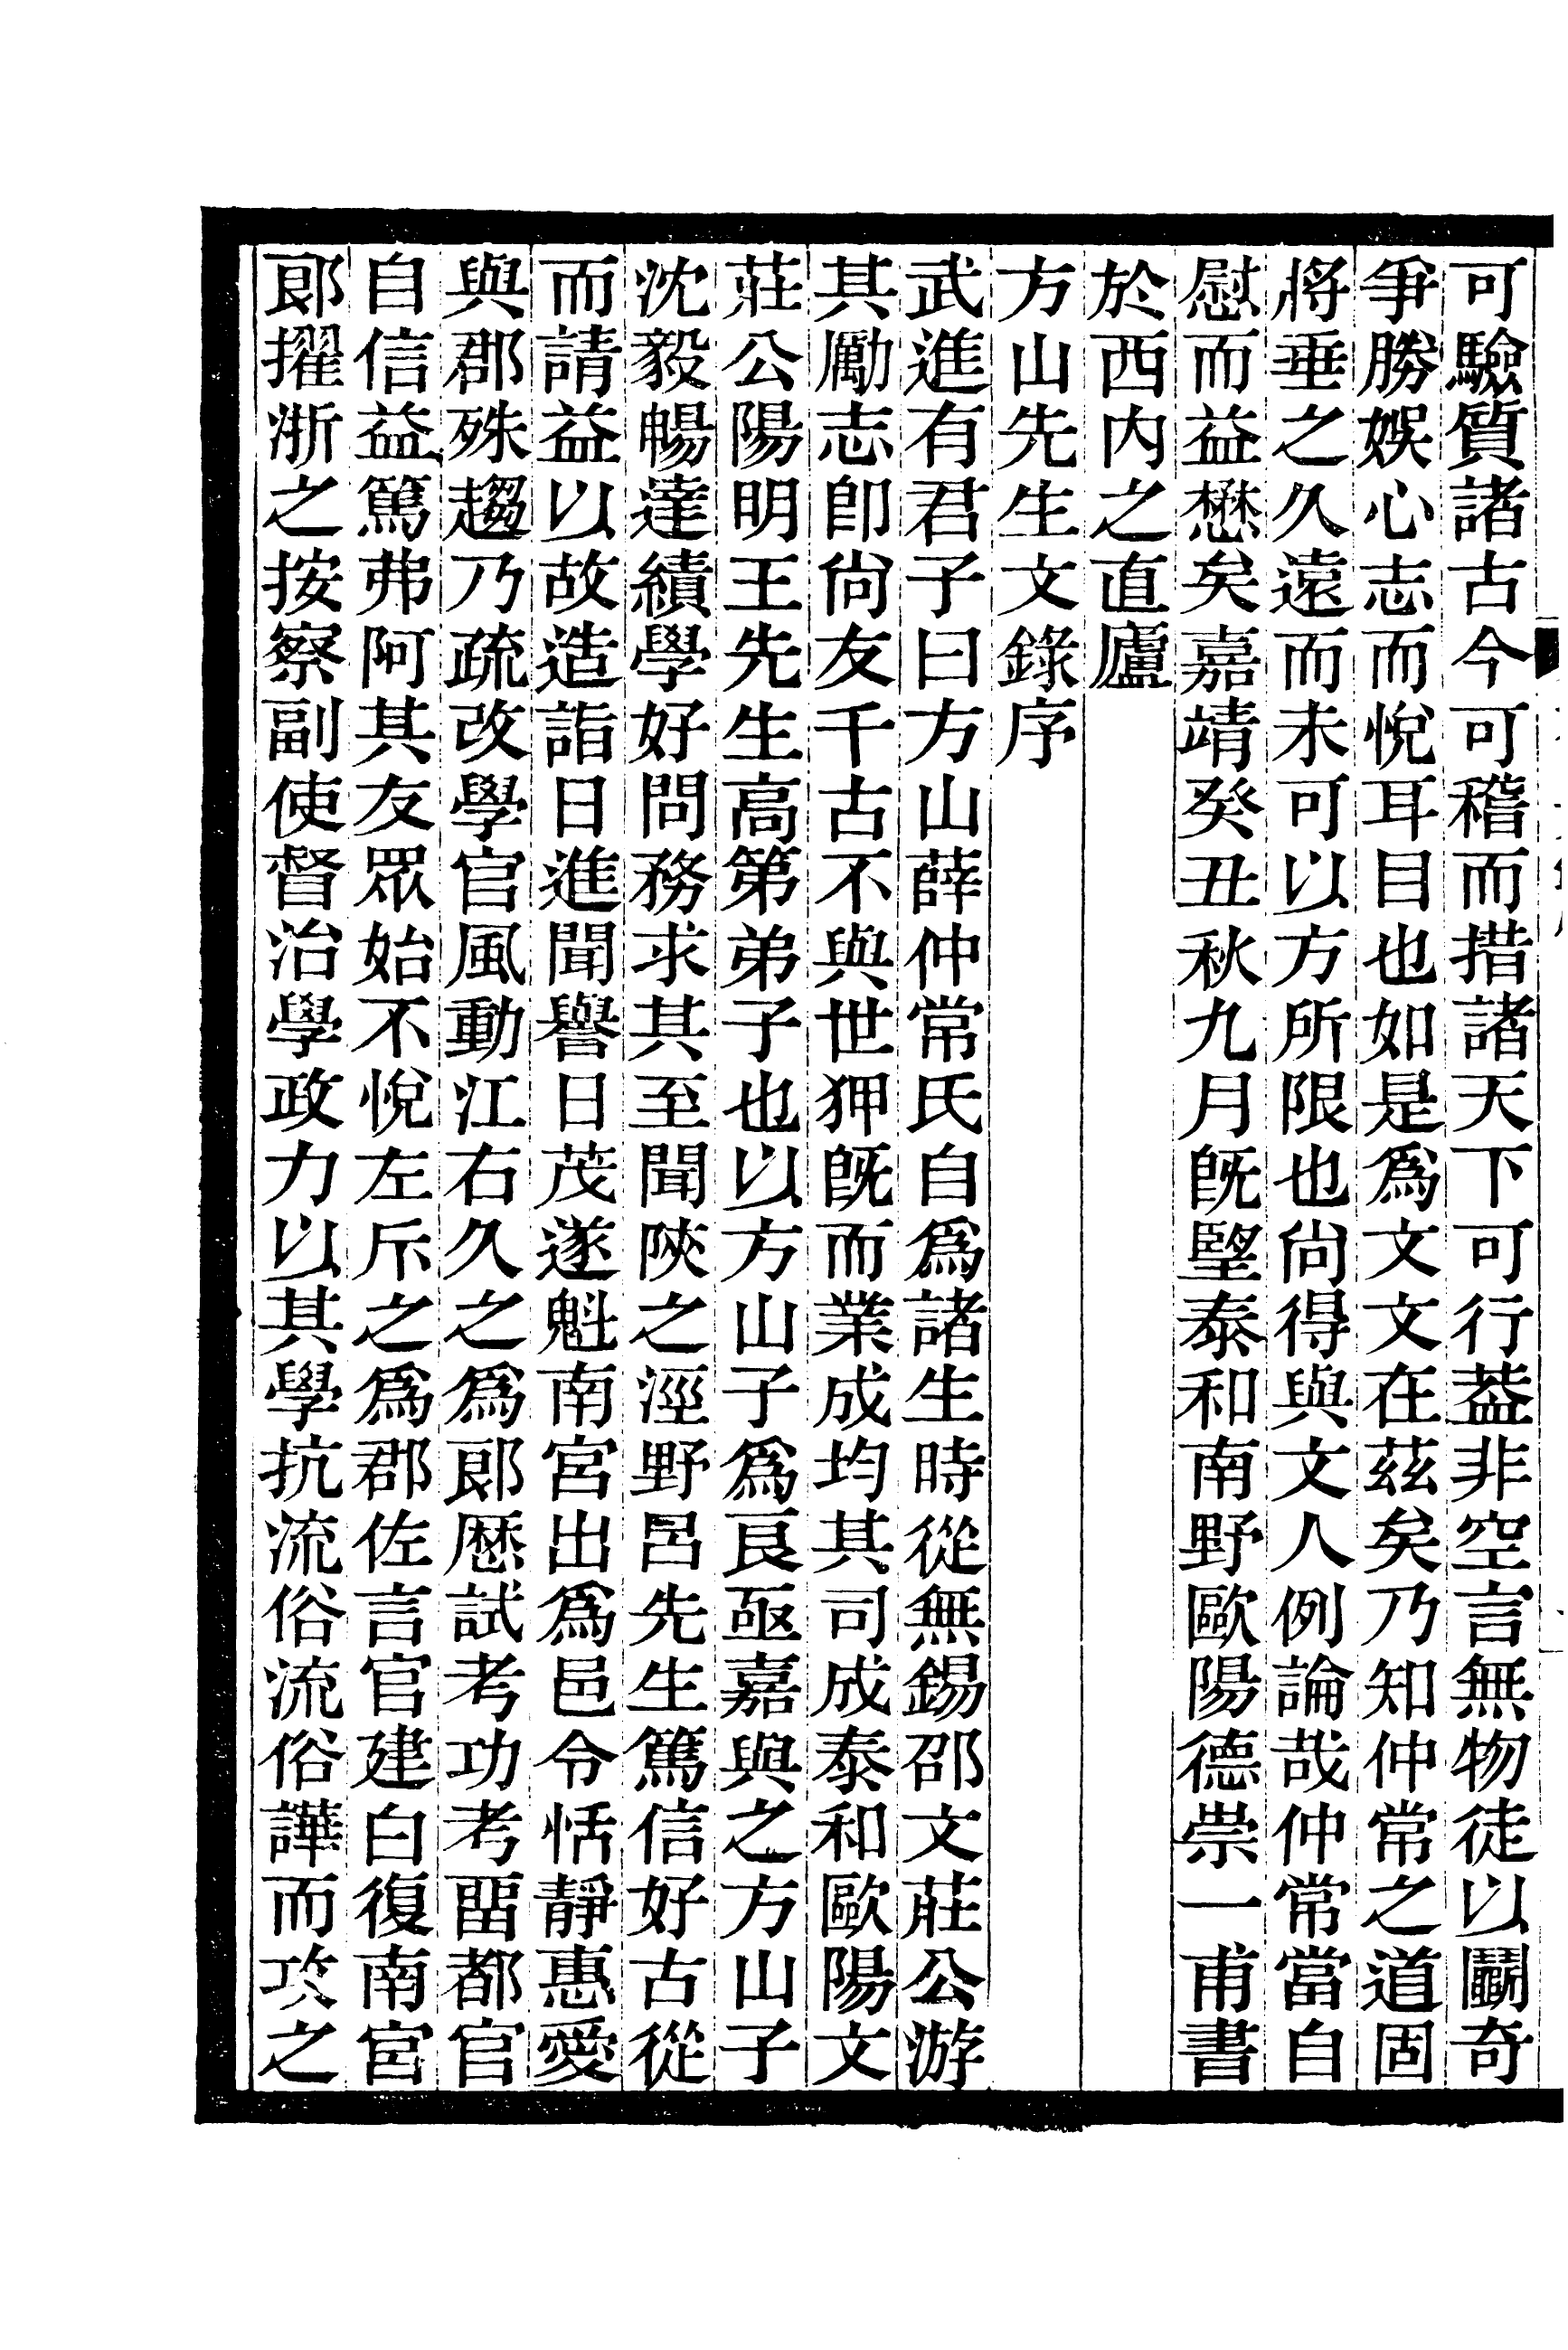 可驗質諸古今可稽而措諸天下可行葢非空言無物徒以鬬奇
爭勝娛心志而悅耳目也如是爲文文在茲矣乃知仲常之道固
將垂之久遠而未可以方所限也尙得與文人例論哉仲常當自
慰而益懋矣嘉靖癸丑秋九月旣朢泰和南野歐陽德崇一甫書
於西內之直廬
方山先生文錄序
武進有君子曰方山薛仲常氏自爲諸生時從無錫邵文莊公游
其勵志卽尙友千古不與世狎旣而業成均其司成泰和歐陽文
莊公陽明王先生高第弟子也以方山子爲良亟嘉與之方山子
沈毅暢達績學好問務求其至聞陜之涇野呂先生篤信好古從
而請益以故造詣日進聞譽日茂遂魁南宮出爲邑令恬靜惠愛
與郡殊趨乃疏改學官風動江右久之爲郞厯試考功考畱都官
自信益篤弗阿其友眾始不悅左斥之爲郡佐言官建白復南宮
郞擢浙之按察副使督治學政力以其學抗流俗流俗譁而攻之